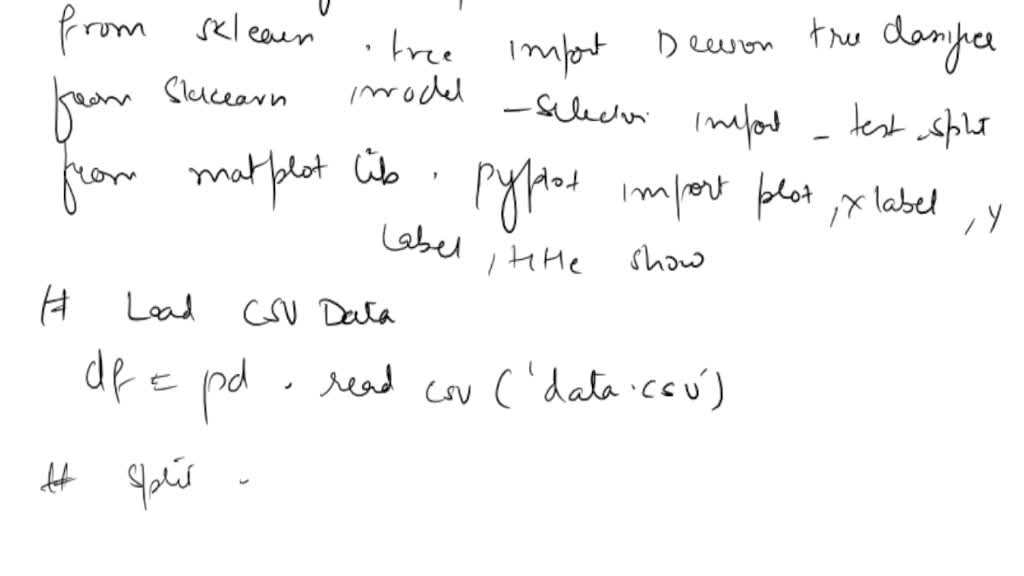 from sklearn . tree import Decision tree classifier
from sklearn model - selection import - test split
from matplot lib . pyplot import plot , x label , y
label , title show
# Load CSV Data
df = pd . read csv ( 'data.csv' )
# split .